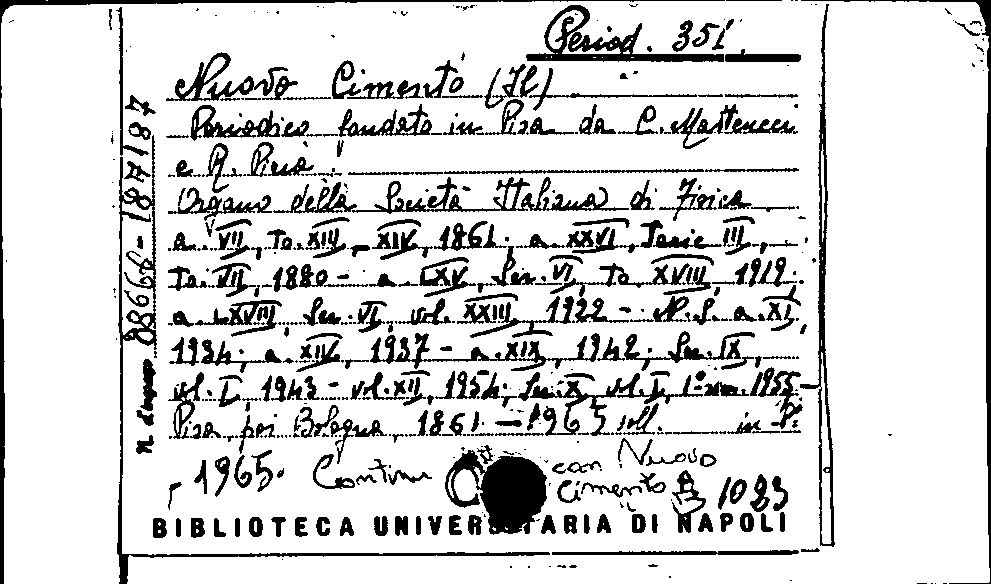 Period. 351.
Nuovo Cimento (Il)
Periodico fondato in Pisa da C. Matteucci
e R. Piria
Organo della Società Italiana di Fisica
a. VII, to. XIII - XIV, 1861; a. XXVI, Serie III,
to. VII, 1880 - a. LXV, Ser. VI, to. XVIII, 1919;
a. LXVIII, Ser. VI, vol. XXIII, 1922 - N.S. a. XI,
1934; a. XIV, 1937 - a. XIX, 1942; Ser. IX,
vol. I, 1943 - vol. XII, 1954; Ser. X, vol. I, 1º sem. 1955 -
Pisa, poi Bologna, 1861 - 1965 voll. in
- 1965. Continua con Nuovo
Cimento B 1083
BIBLIOTECA UNIVERSITARIA DI NAPOLI
n. d'ingresso 88666 - 187187